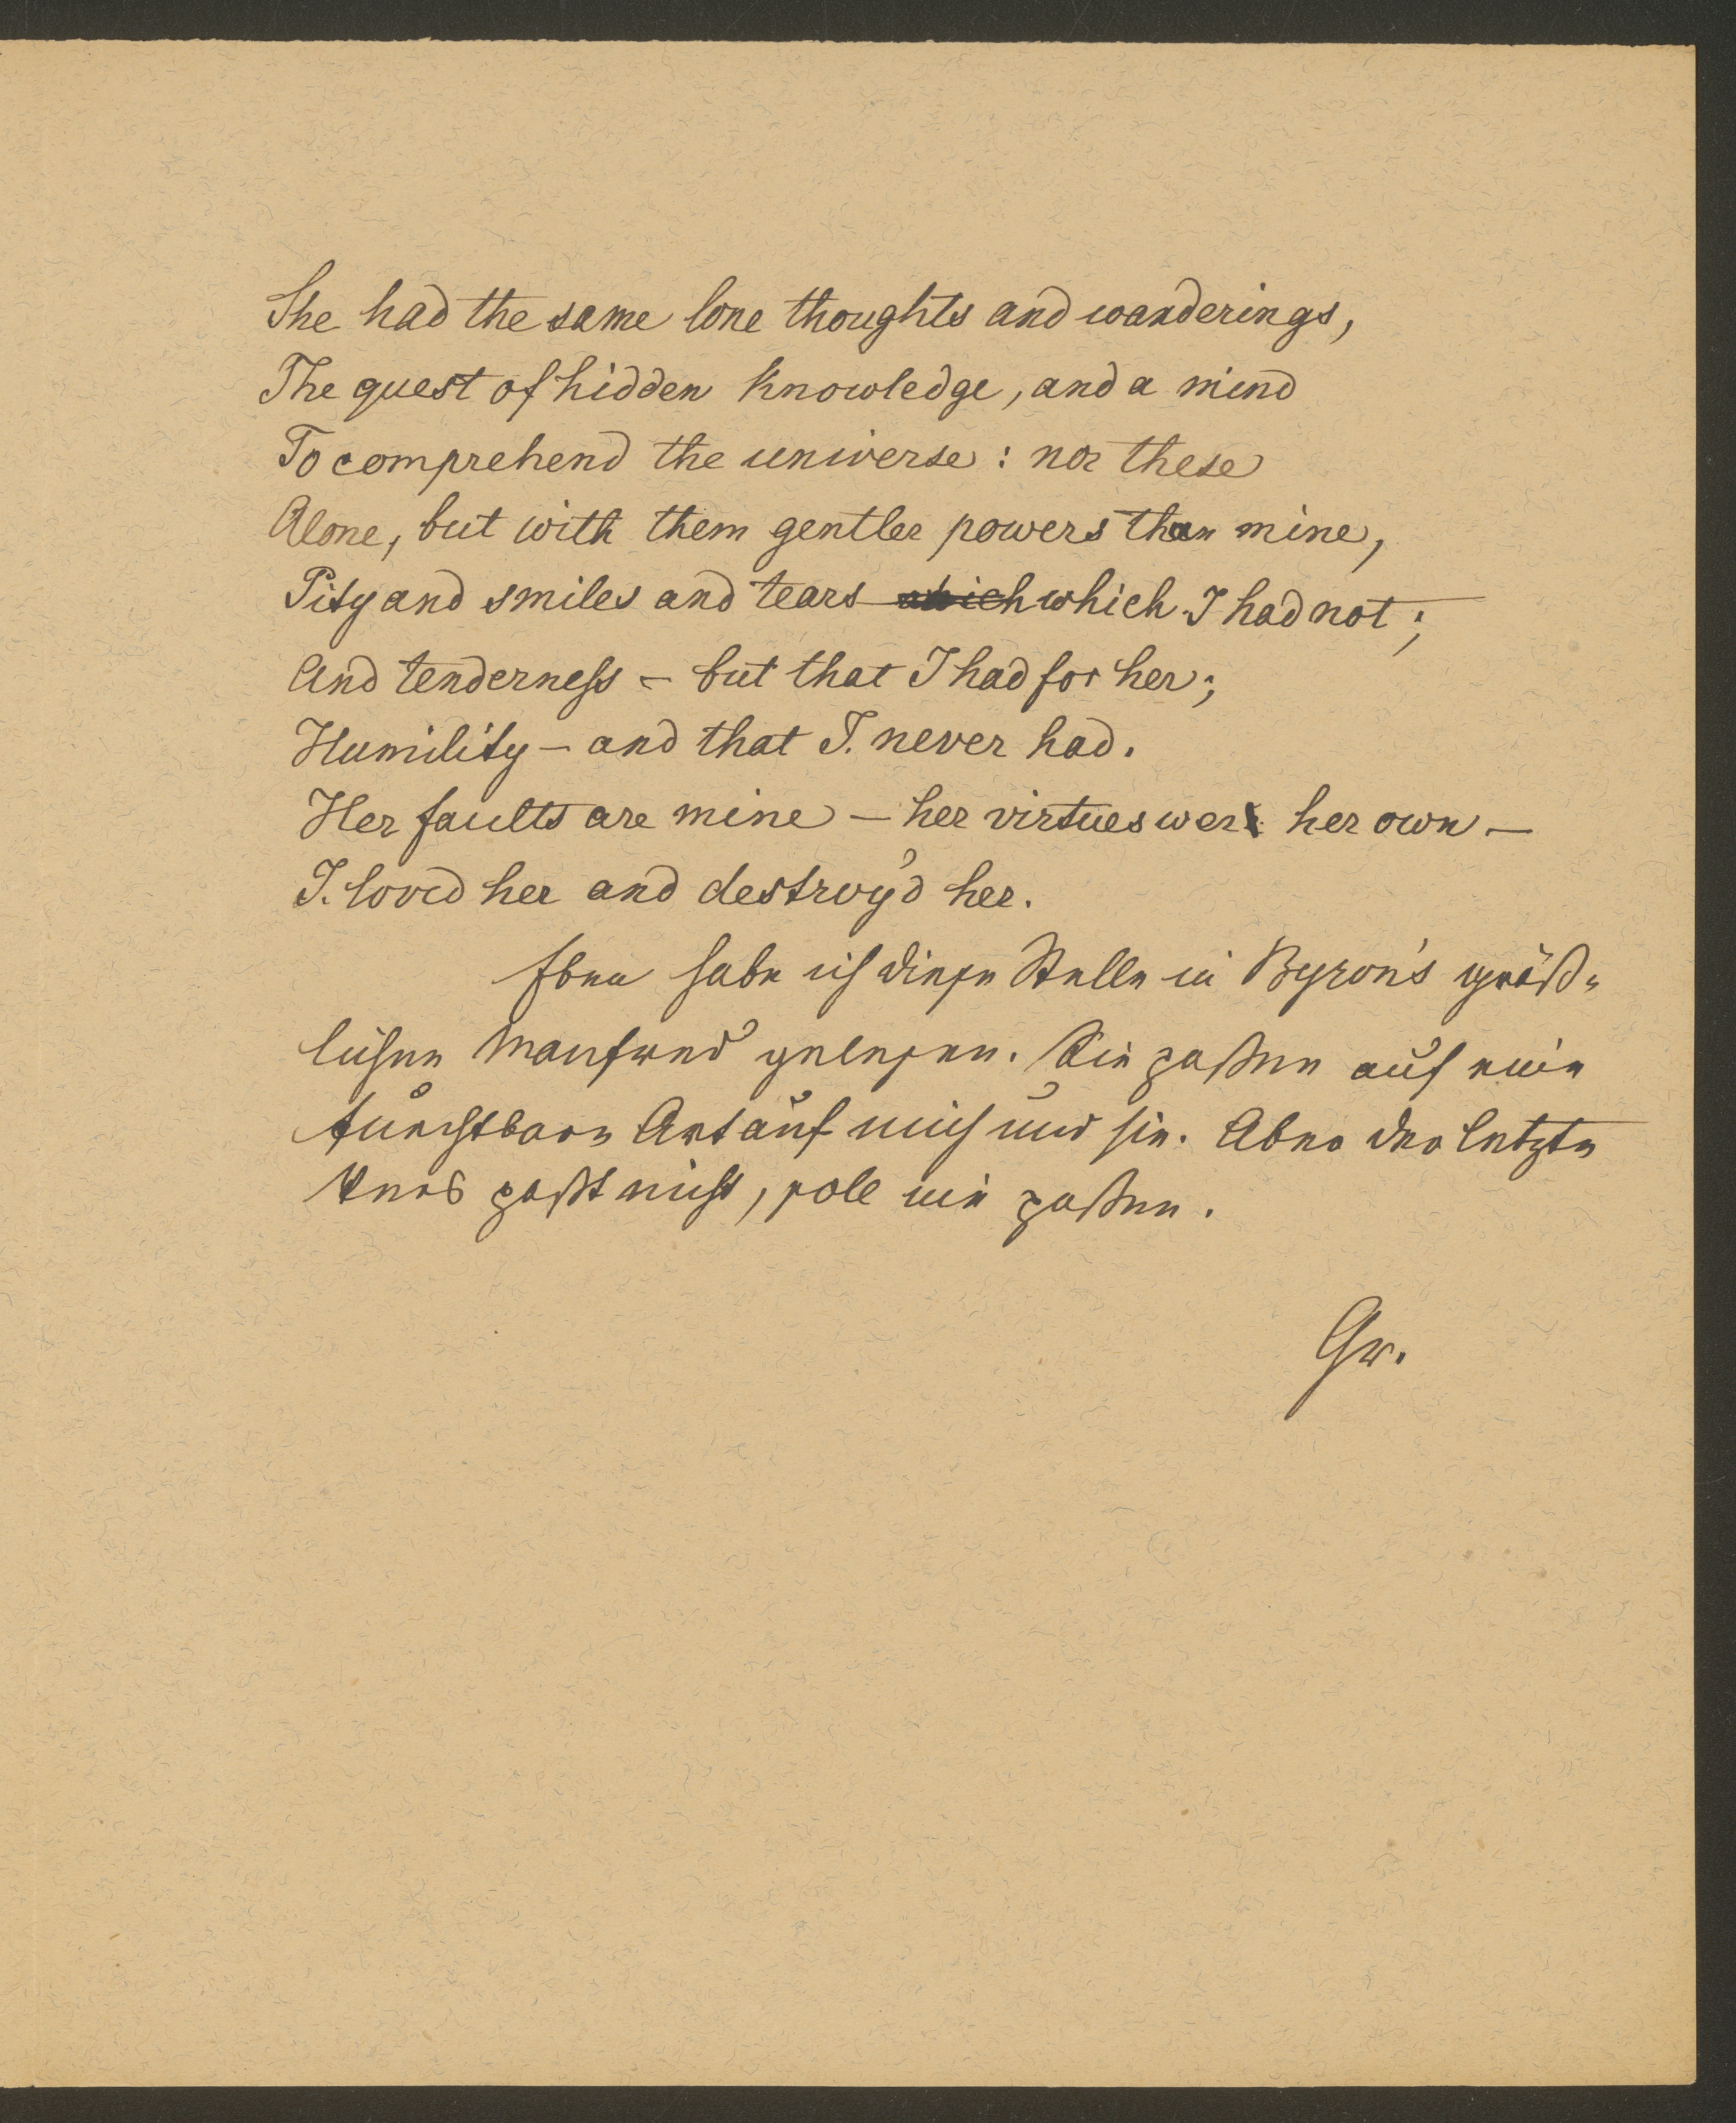 She had the same lone thoughts and wanderings,
The quest of hidden Knowledge, and a mind
To comprehend the universe: nor these
Alone, but with them gentler powers than mine,
Pity and smiles and tears which which I had not;
And tenderness – but that I had for her;
Humility – and that I. never had.
Her faults are mine – her virtues were her own –
I. lov'd her and destroy'd her.
Eben habe ich diese Stelle in Byron's gräß-
lichen Manfred gelesen. Sie passen auf eine
furchtbare Art auf mich und sie. Aber der letzte
Vers paßt nicht, soll nie passen.
Gr.